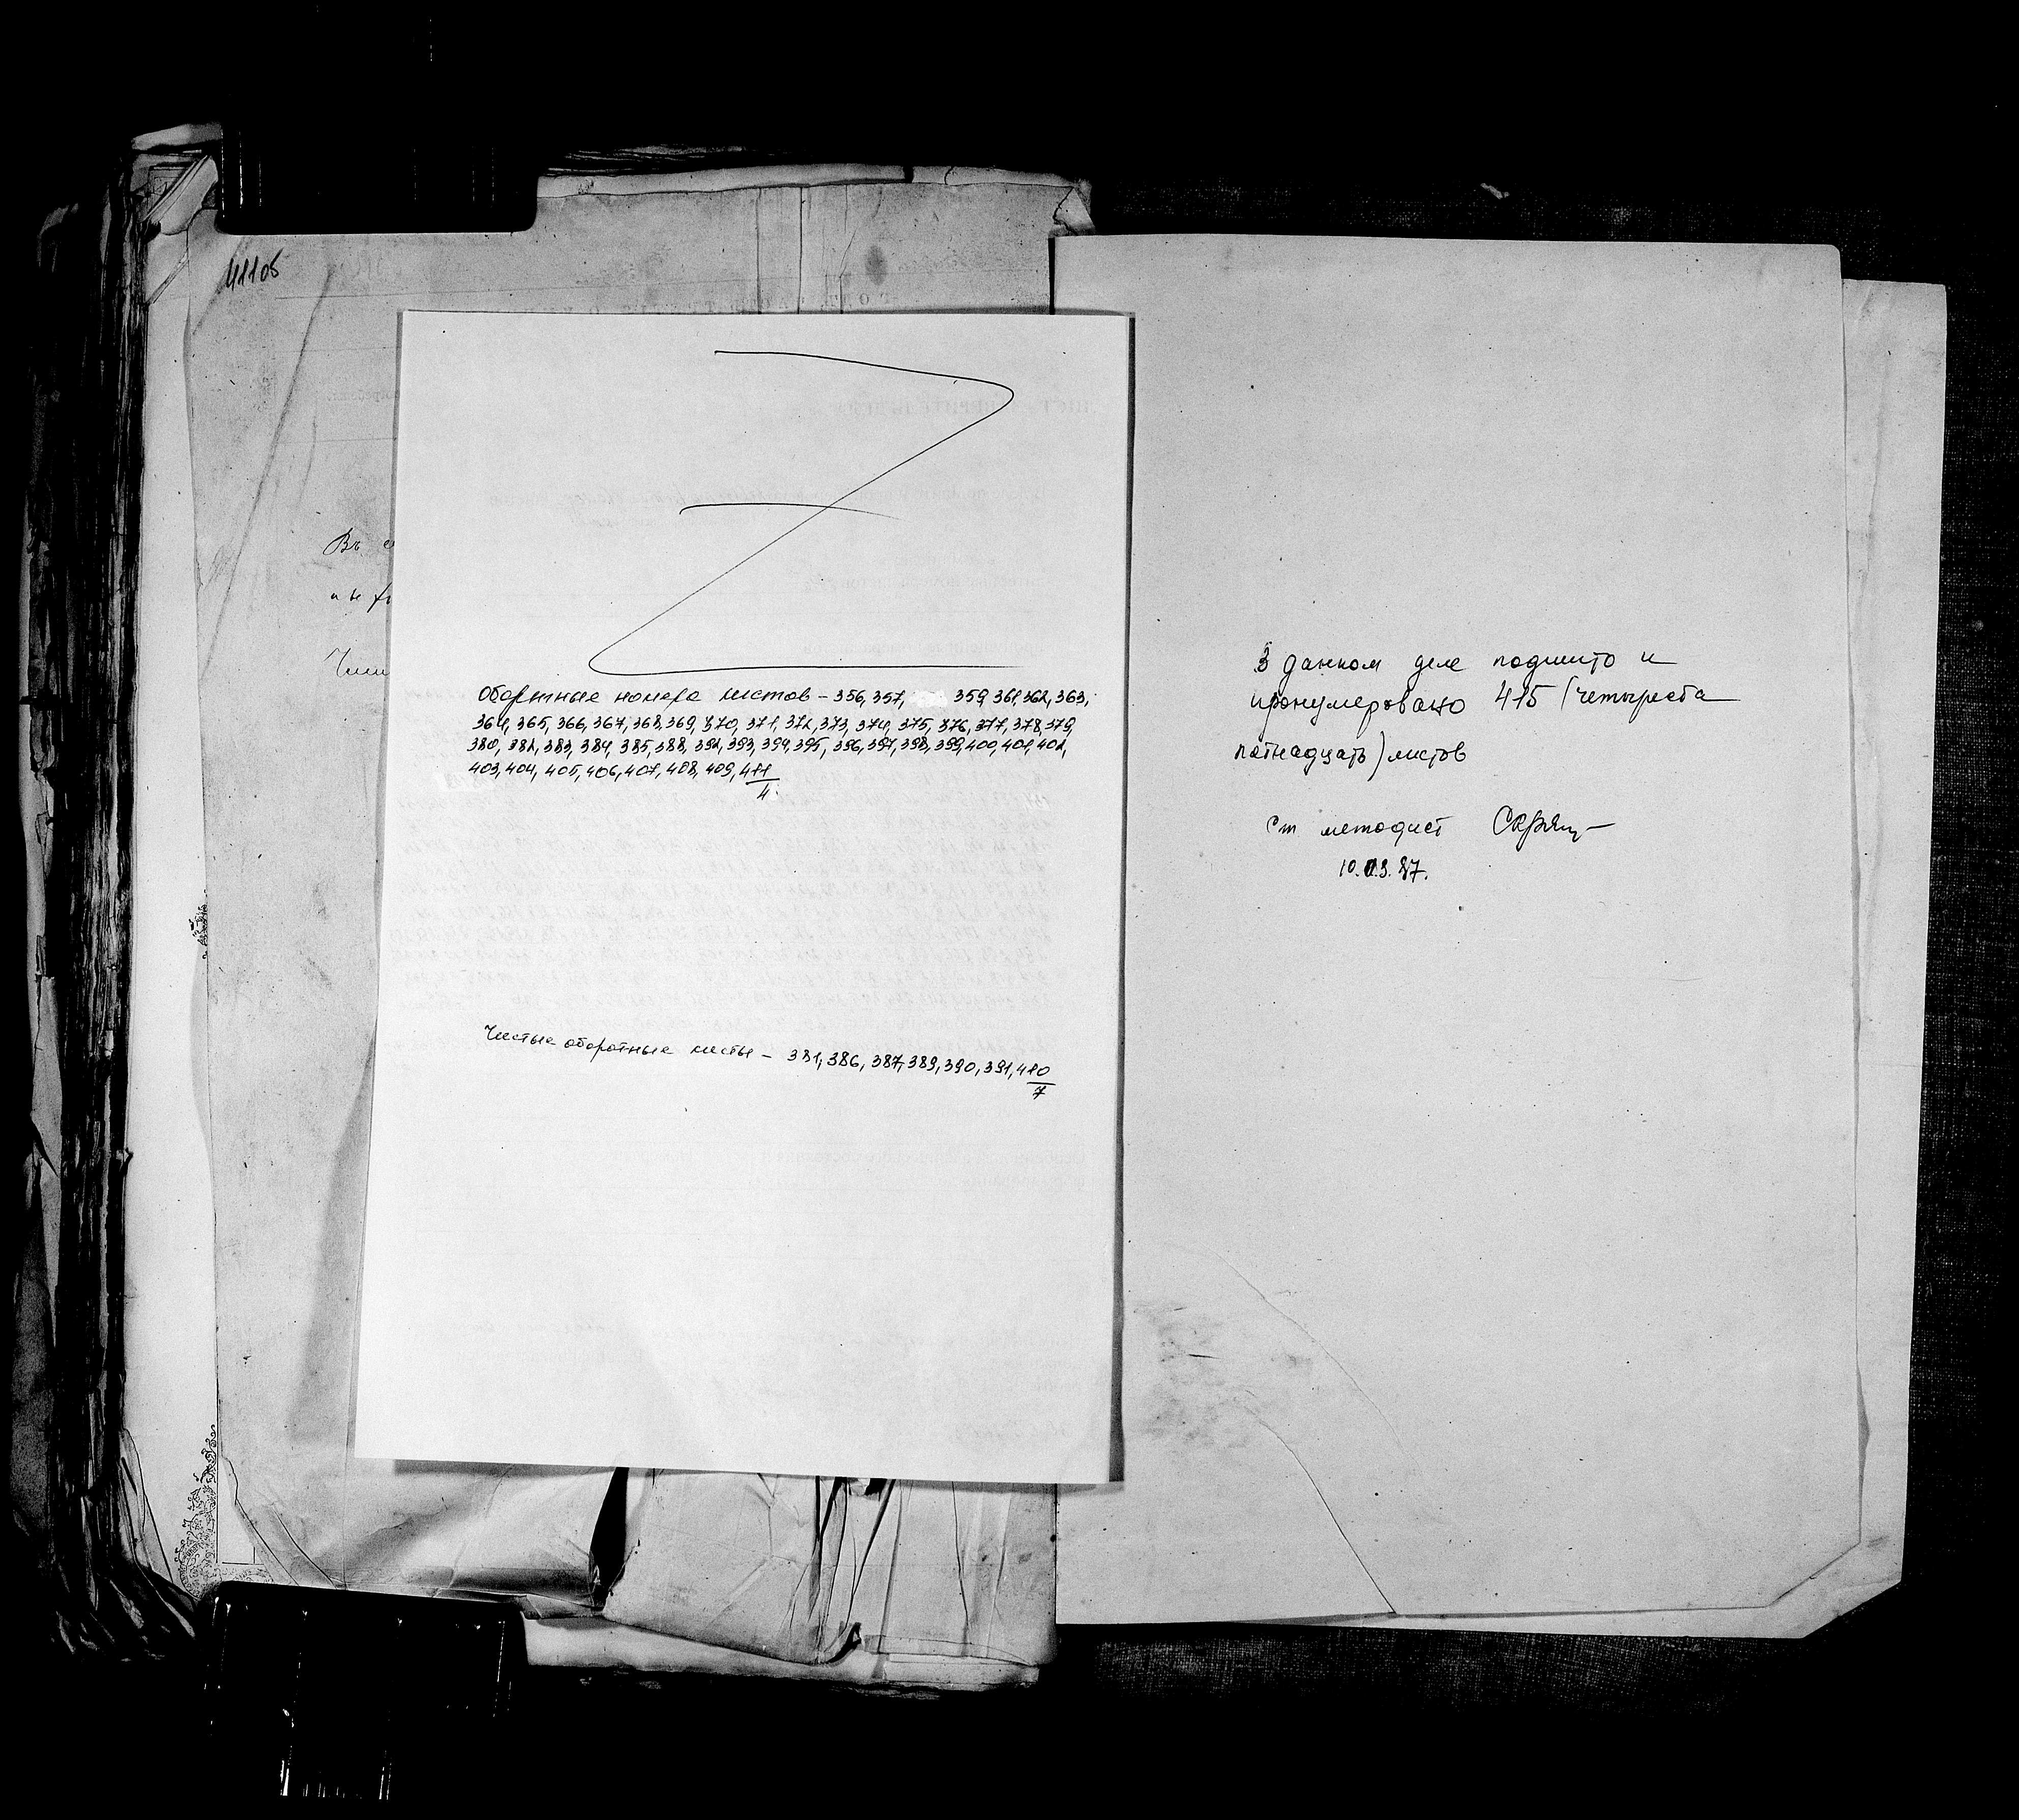 411об
Въ
Оборотные номера листов – 356, 357, 359, 361, 362, 363,
364, 365, 366, 367, 368, 369, 370, 371, 372, 373, 374, 375, 376, 377, 378, 379,
380, 382, 383, 384, 385, 388, 392, 393, 394, 395, 396, 397, 398, 399, 400, 401, 402,
403, 404, 405, 406, 407, 408, 409, 411
4
Чистые оборотные листы – 381, 386, 387, 389, 390, 391, 410
7
В данном деле подшито и
пронумеровано 415 (четыреста
пятнадцать) листов
ст методист
10.03.87.